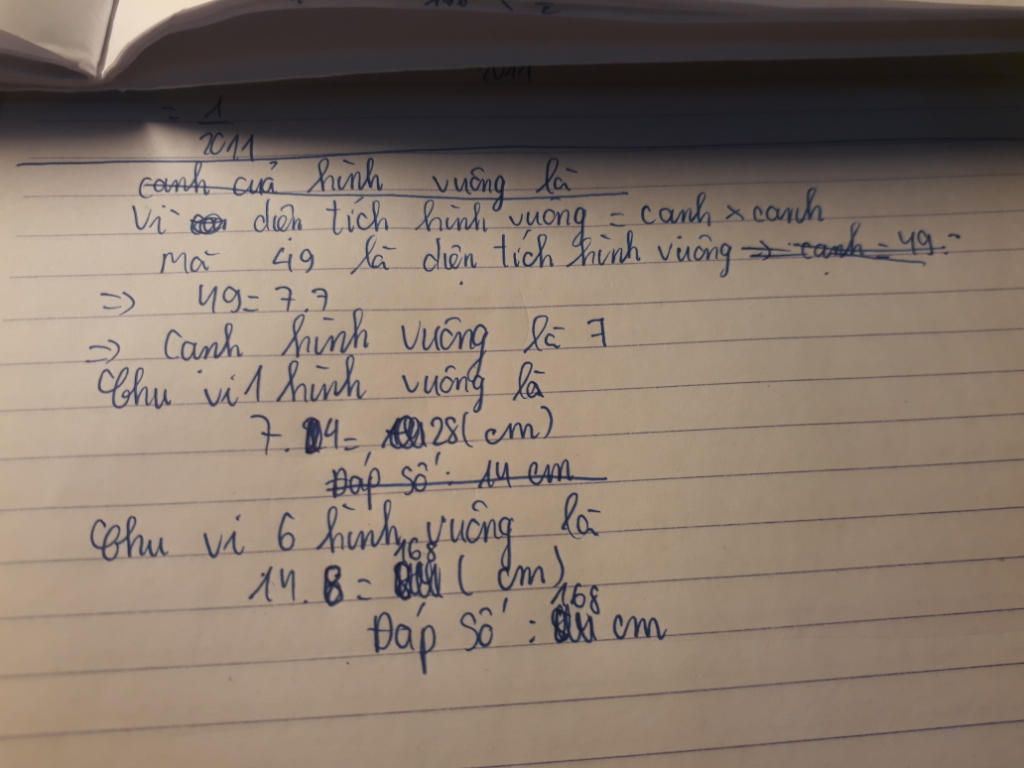 = 1/2011
canh cuả hình vuông là
Vì diên tích hình vuông = canh x canh
mà 49 là diên tích hình vuông => canh = 49:
=> 49 = 7.7
=> Canh hình vuông là 7
Chu vi 1 hình vuông là
7. 4 = 28 ( cm )
Đáp số : 14 cm
Chu vi 6 hình vuông là
14. 6 = 168 ( cm )
Đáp số : 168 cm